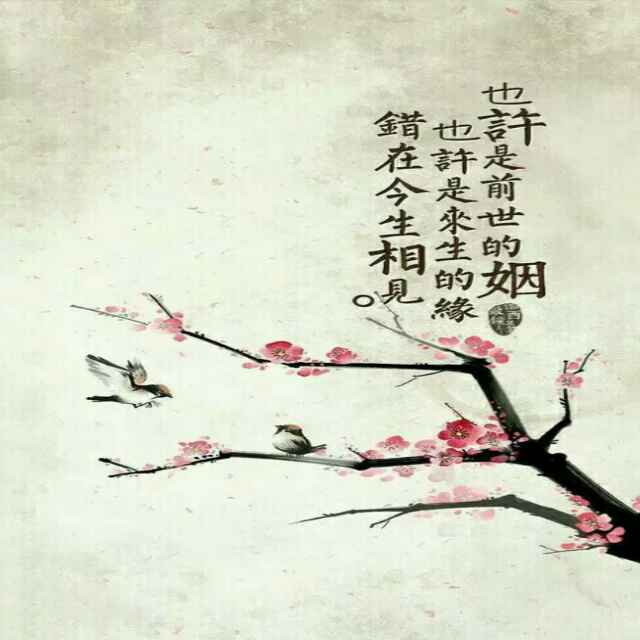 也許是前世的姻
也許是來生的緣
錯在今生相見。